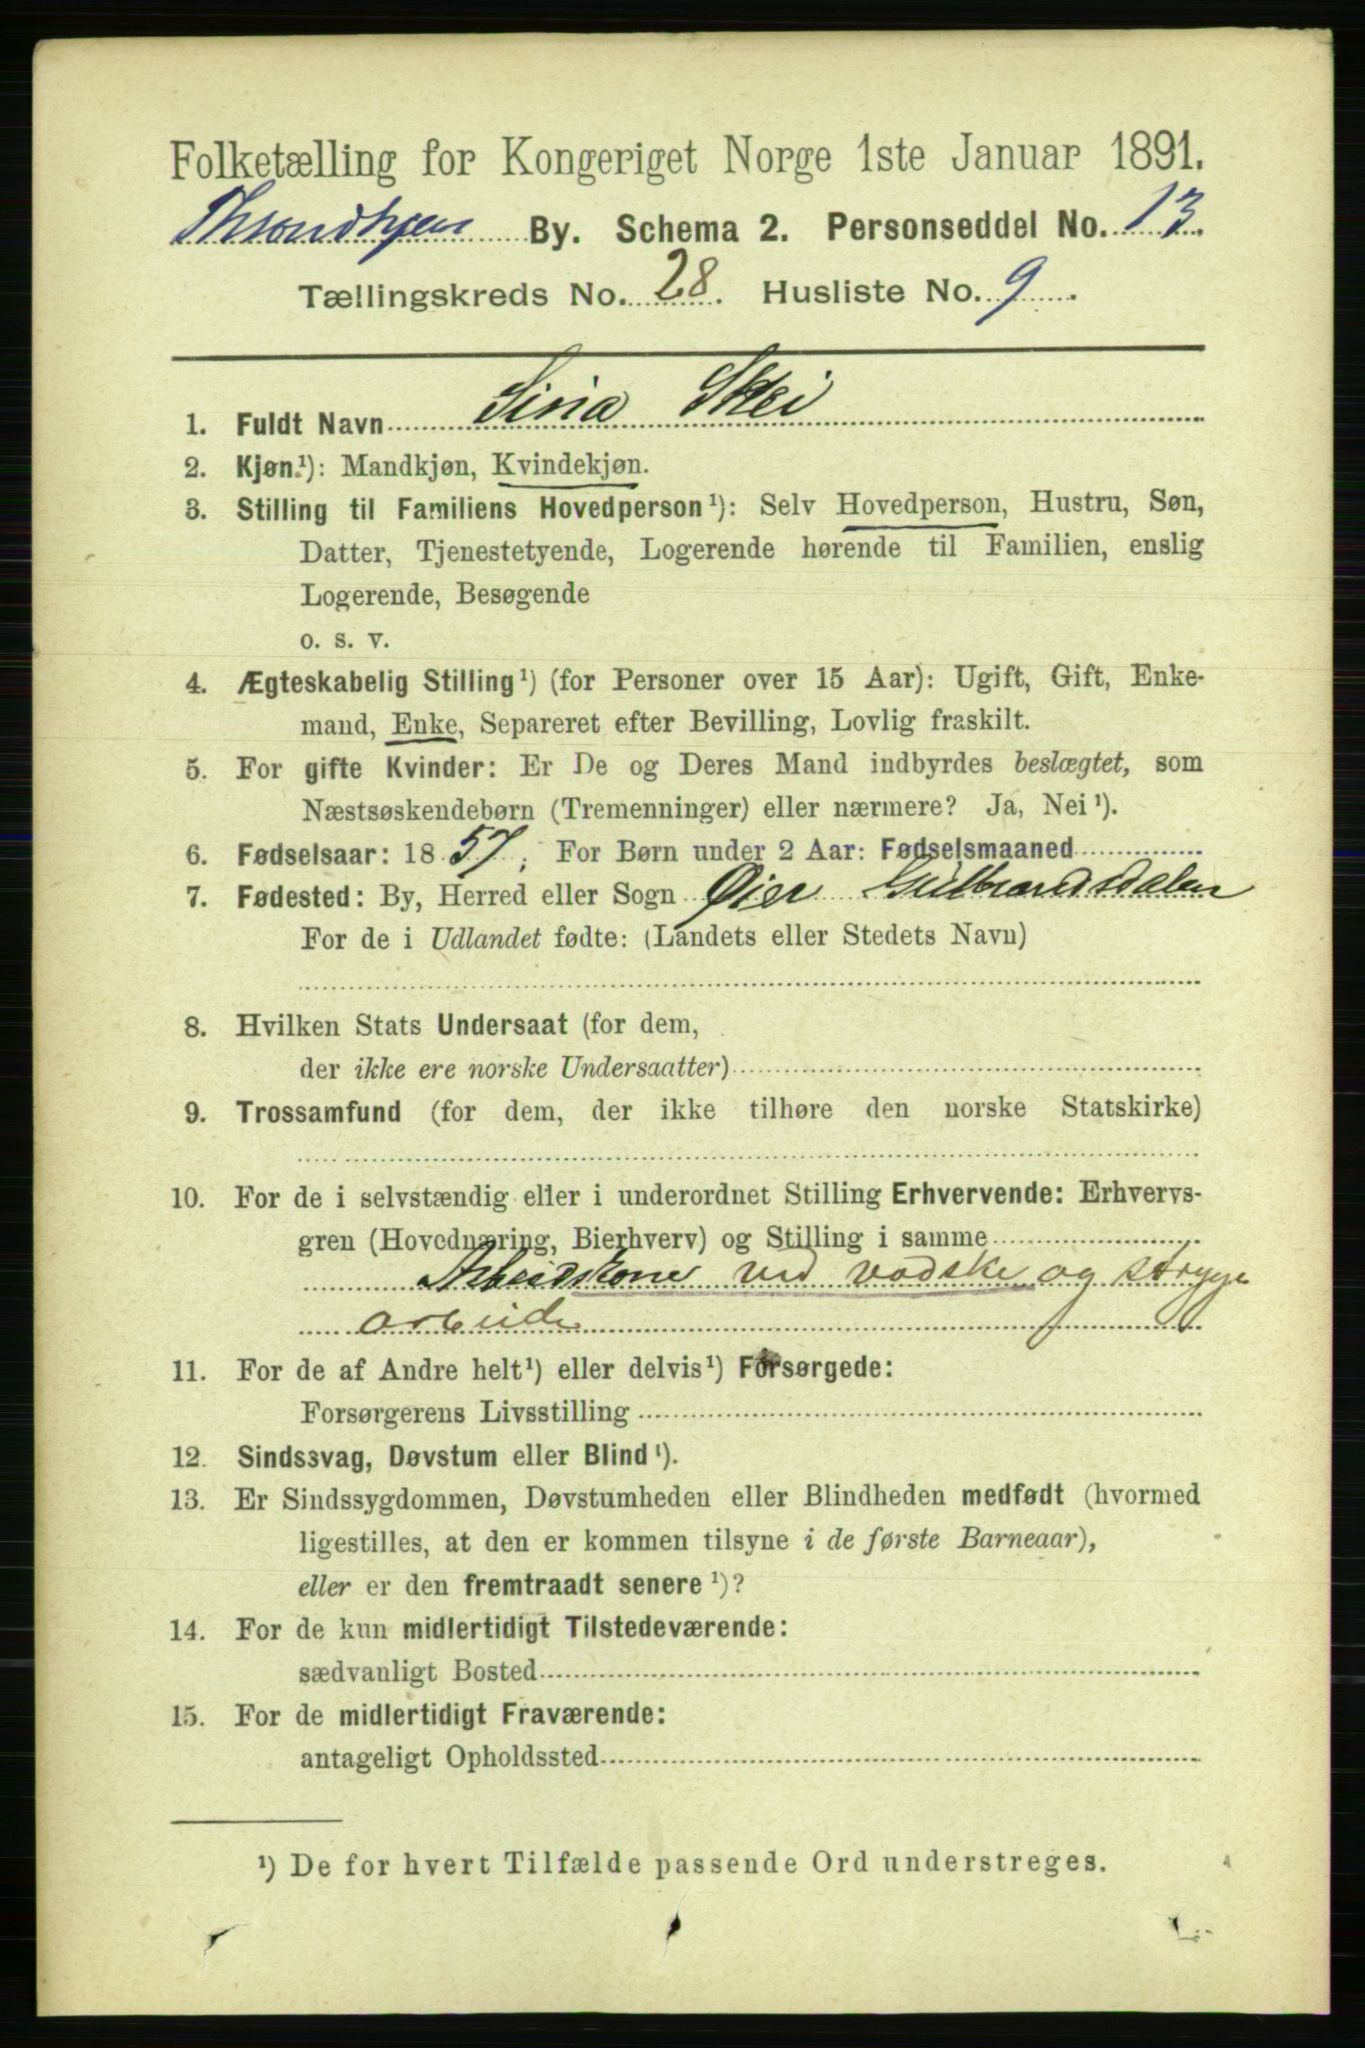 Folketælling for Kongeriget Norge 1ste Januar 1891.
Throndhjem By. Schema 2. Personseddel No. 13.
Tællingskreds No. 28. Husliste No. 9.
1. Fuldt Navn Sina Skei
2. Kjøn ¹): Mandkjøn, Kvindekjøn.
3. Stilling til Familiens Hovedperson ¹): Selv Hovedperson, Hustru, Søn,
Datter, Tjenestetyende, Logerende hørende til Familien, enslig
Logerende, Besøgende
o. s. v.
4. Ægteskabelig Stilling ¹) (for Personer over 15 Aar): Ugift, Gift, Enke-
mand, Enke, Separeret efter Bevilling, Lovlig fraskilt.
5. For gifte Kvinder: Er De og Deres Mand indbyrdes beslægtet, som
Næstsøskendebørn (Tremenninger) eller nærmere? Ja, Nei ¹).
6. Fødselsaar: 1857. For Børn under 2 Aar: Fødselsmaaned
7. Fødested: By, Herred eller Sogn Øier Gulbrandsdalen
For de i Udlandet fødte: (Landets eller Stedets Navn)
8. Hvilken Stats Undersaat (for dem,
der ikke ere norske Undersaatter)
9. Trossamfund (for dem, der ikke tilhøre den norske Statskirke)
10. For de i selvstændig eller i underordnet Stilling Erhvervende: Erhvervs-
gren (Hovednæring, Bierhverv) og Stilling i samme
Arbeidskone ved vadske og stryge
arbeide
11. For de af Andre helt ¹) eller delvis ¹) Forsørgede:
Forsørgerens Livsstilling
12. Sindssvag, Døvstum eller Blind ¹).
13. Er Sindssygdommen, Døvstumheden eller Blindheden medfødt (hvormed
ligestilles, at den er kommen tilsyne i de første Barneaar),
eller er den fremtraadt senere ¹)?
14. For de kun midlertidigt Tilstedeværende:
sædvanligt Bosted
15. For de midlertidigt Fraværende:
antageligt Opholdssted
¹) De for hvert Tilfælde passende Ord understreges.